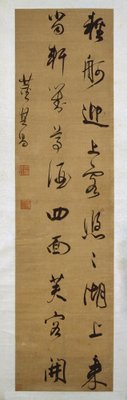 輕舸迎上客悠々湖上來
當軒對尊酒四面芙蓉開
董其昌